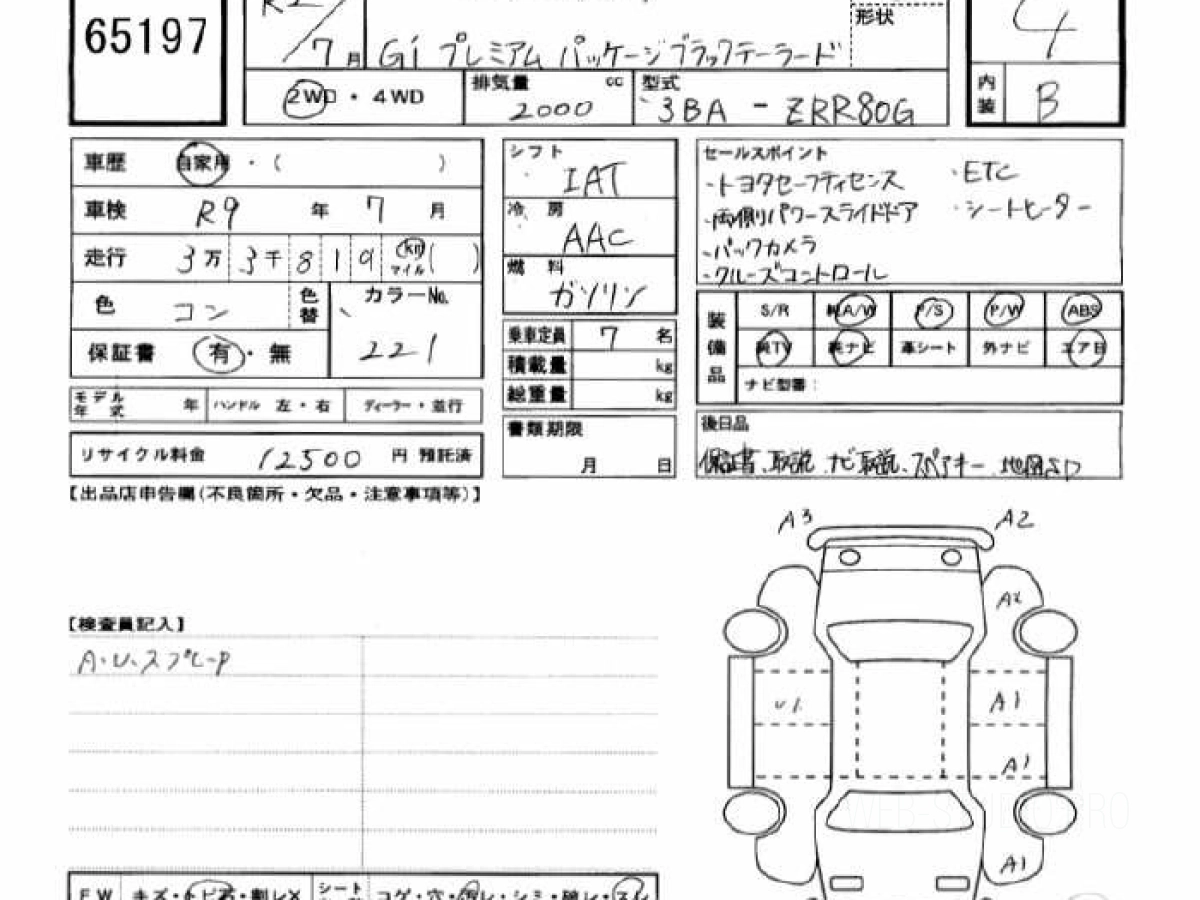 65197
R2
7月
Gi プレミアム パッケージ ブラックテーラード
形状
4
2WD ・ 4WD
排気量 cc
2000
型式
3BA - ZRR80G
内装
B
車歴 自家用 ・ ( )
車検 R9 年 7 月
走行 3万 3千 8 1 9 km マイル ( )
色 コン
色替
カラーNo.
221
保証書 有 ・ 無
モデル年式 年 ハンドル 左 ・ 右 ディーラー ・ 並行
リサイクル料金 12500 円 預託済
シフト
IAT
冷房
AAC
燃料
ガソリン
乗車定員 7 名
積載量 kg
総重量 kg
書類期限
月 日
セールスポイント
・トヨタセーフティセンス ・ETC
・両側パワースライドドア ・シートヒーター
・バックカメラ
・クルーズコントロール
装備品
S/R 純A/W P/S P/W ABS
純TV 純ナビ 革シート 外ナビ エアB
ナビ型番：
後日品
保証書、取説、ナビ取説、スペアキー、地図SD
【出品店申告欄(不良箇所・欠品・注意事項等)】
A3
A2
A2
【検査員記入】
A・U・スプレーP
U1
A1
A1
A1
FW キズ・トビ石・割レX
シート コゲ・穴・汚レ・シミ・破レ・スレ
WEB-S